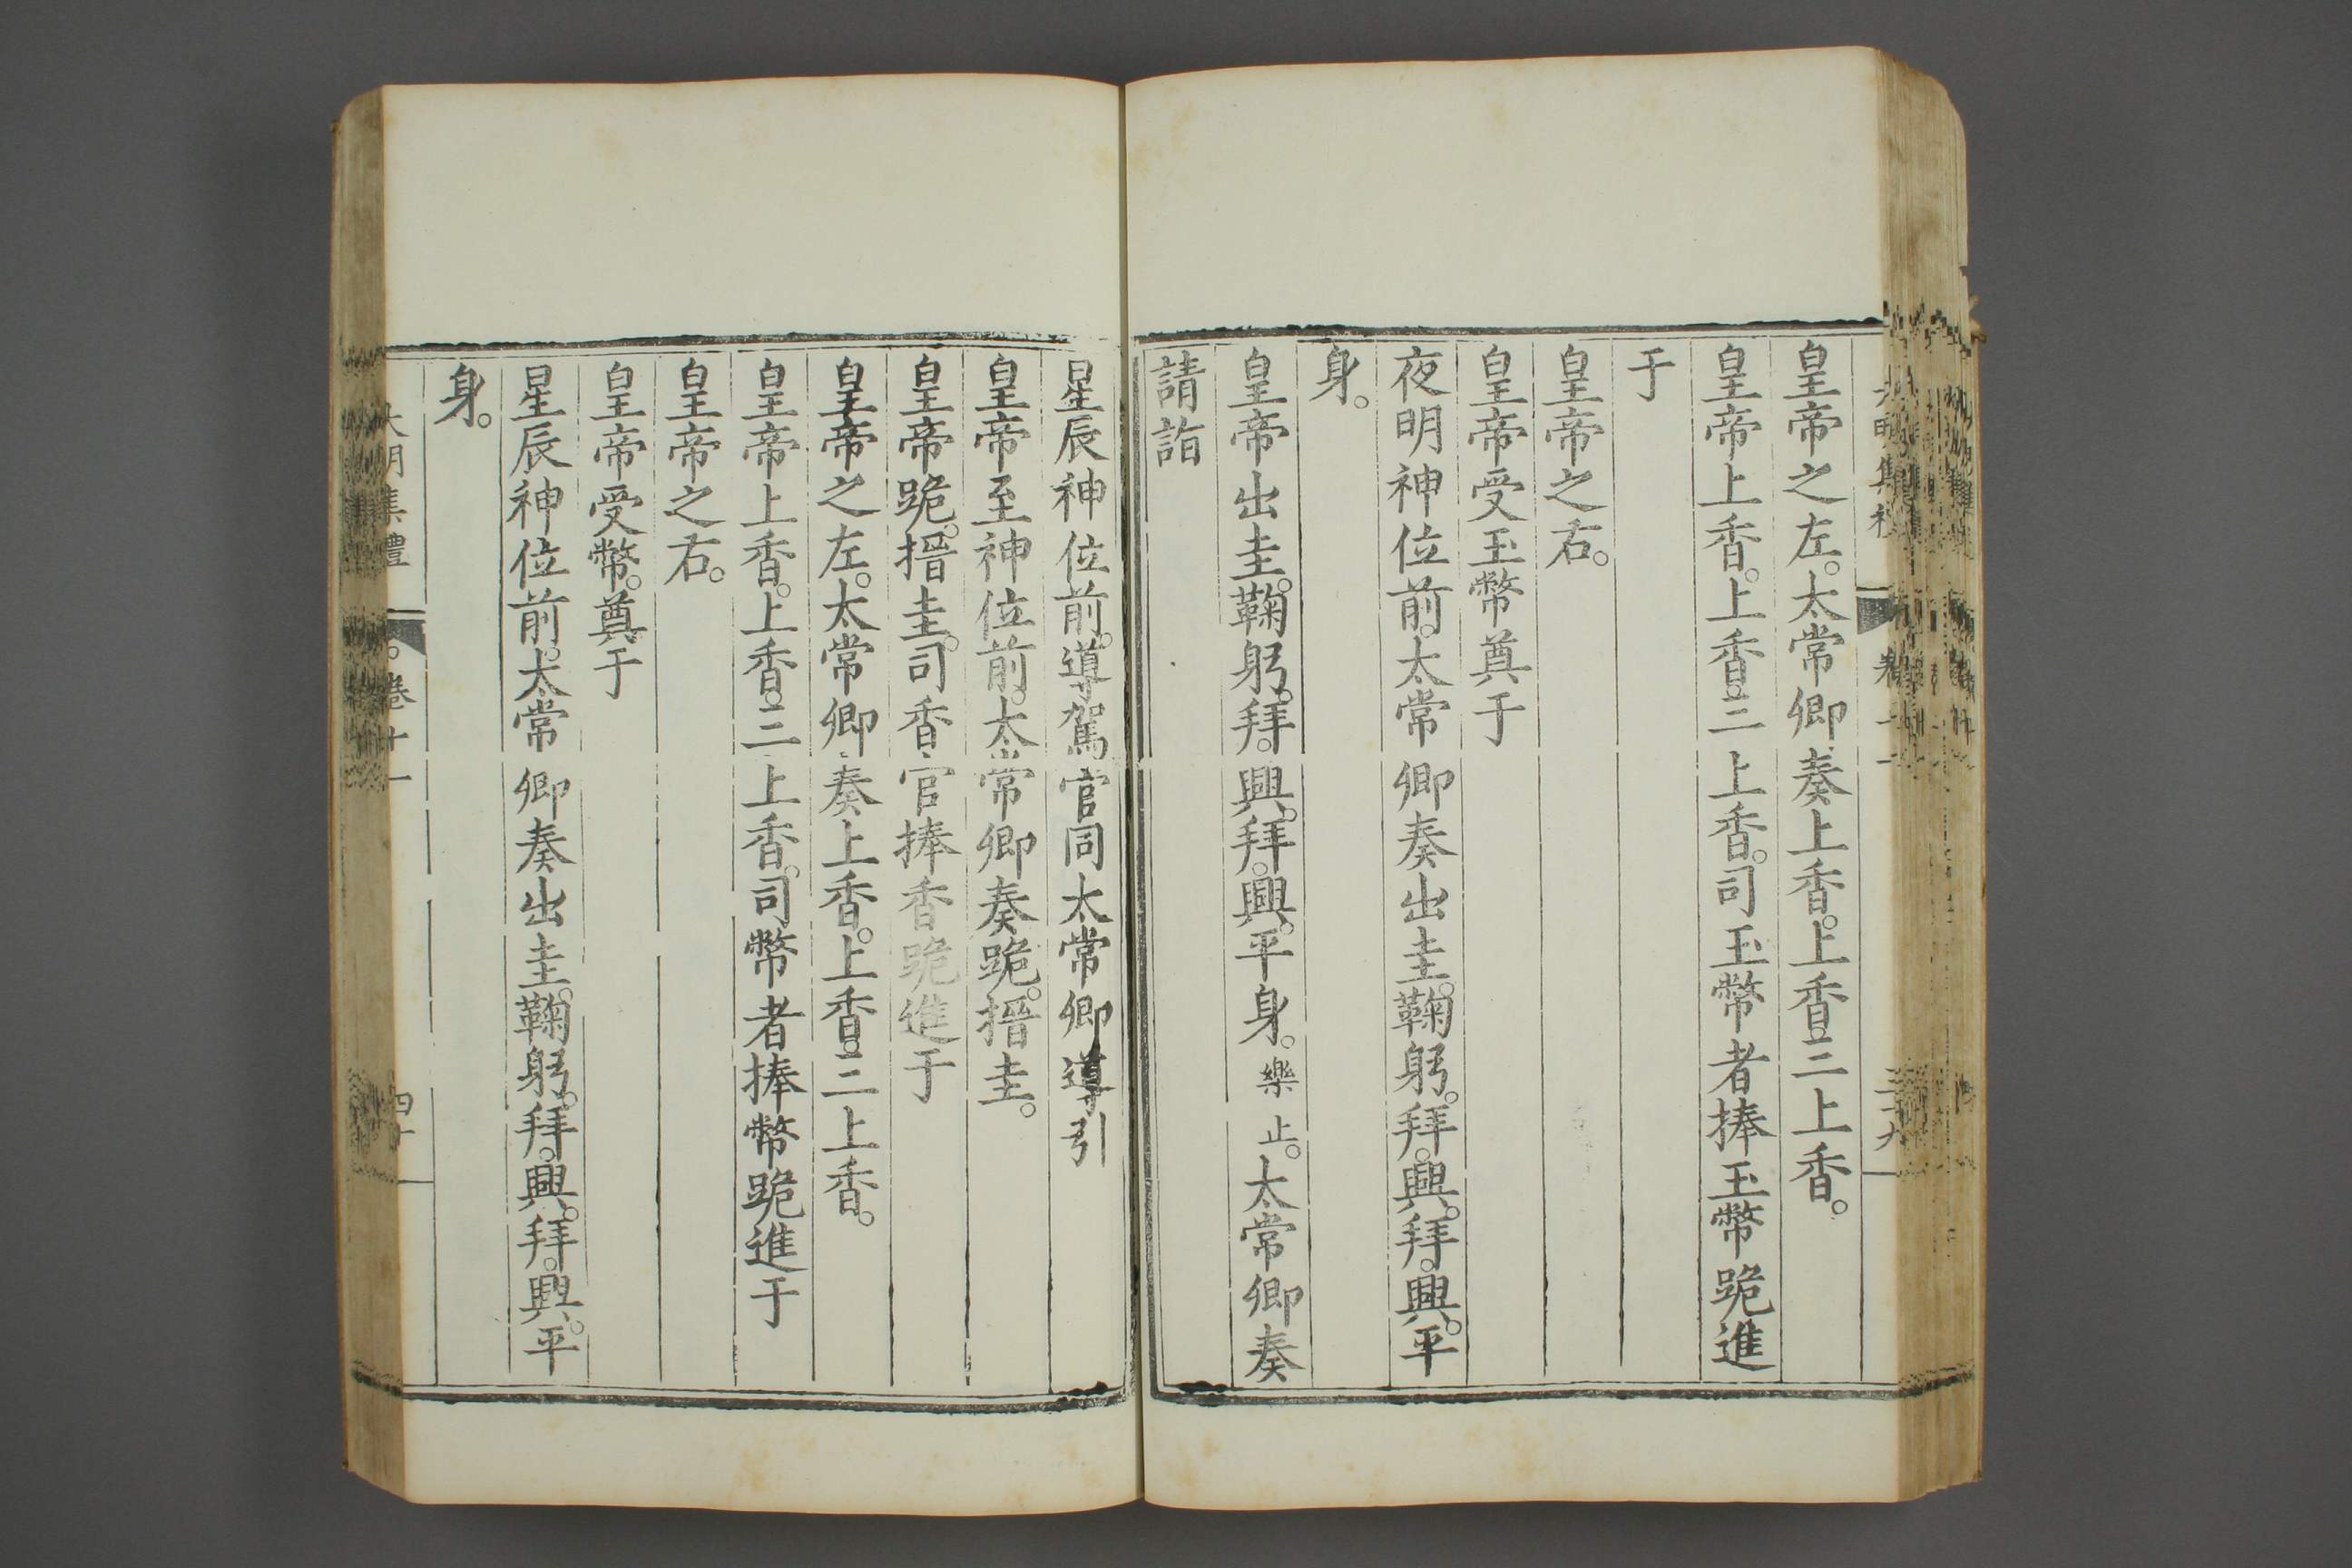 皇帝之左。太常卿奏上香。上香。三上香。
皇帝上香。上香。三上香。司玉幣者捧玉幣跪進
于
皇帝之右。
皇帝受玉幣奠于
夜明神位前。太常卿奏出圭。鞠躬。拜。興。拜。興。平
身。
皇帝出圭。鞠躬。拜。興。拜。興。平身。樂止。太常卿奏
請詣
星辰神位前。導駕官同太常卿導引
皇帝至神位前。太常卿奏跪。搢圭。
皇帝跪。搢圭。司香官捧香跪進于
皇帝之左。太常卿奏上香。上香。三上香。
皇帝上香。上香。三上香。司幣者捧幣跪進于
皇帝之右。
皇帝受幣。奠于
星辰神位前。太常卿奏出圭。鞠躬。拜。興。拜。興。平
身。
大明集禮 卷十一 四十